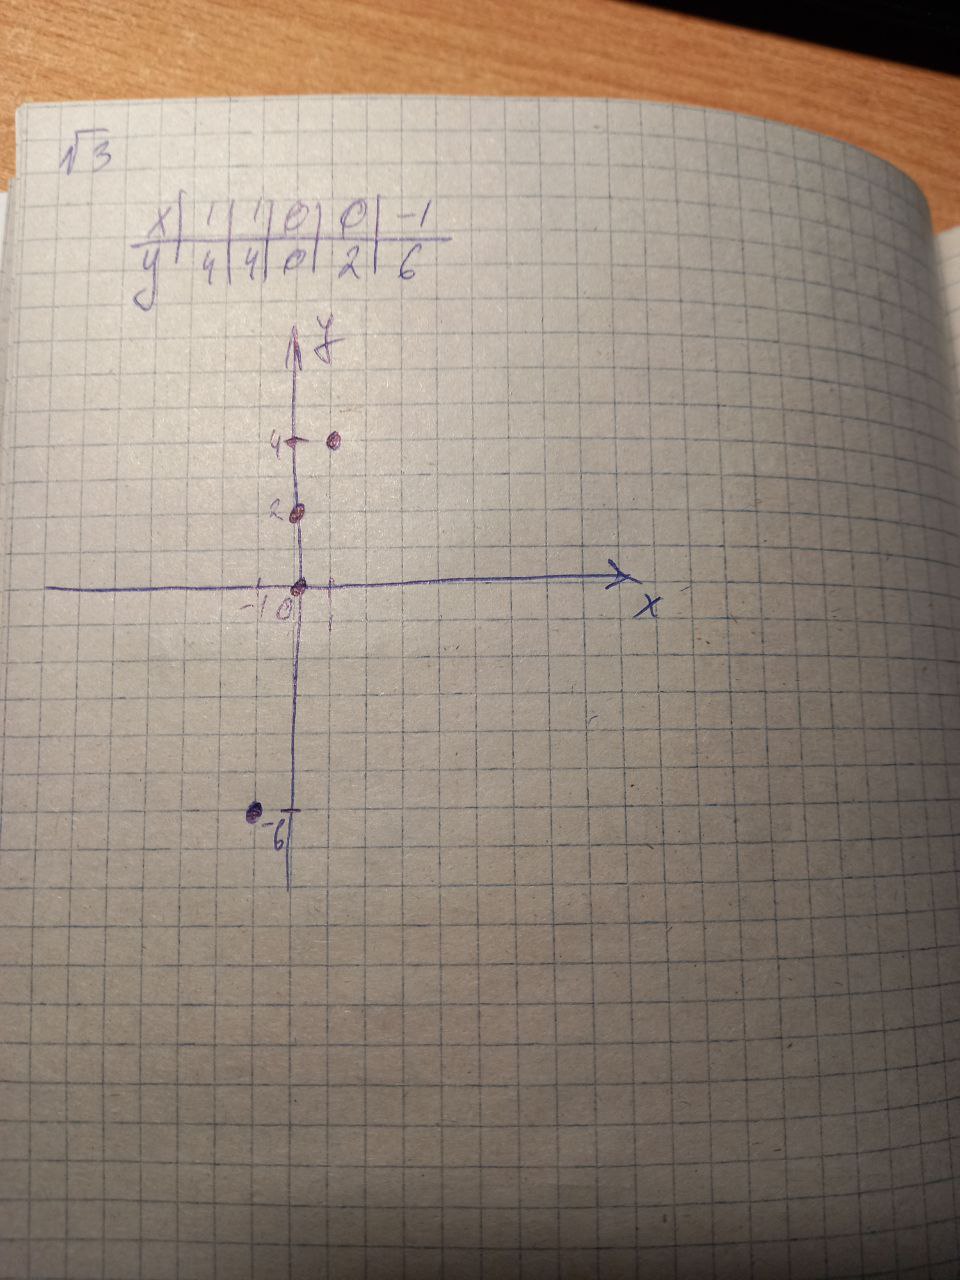 √3
x | 1 | 1 | 0 | 0 | -1
y | 4 | 4 | 0 | 2 | 6
y
4
2
-1 0 1
x
-6